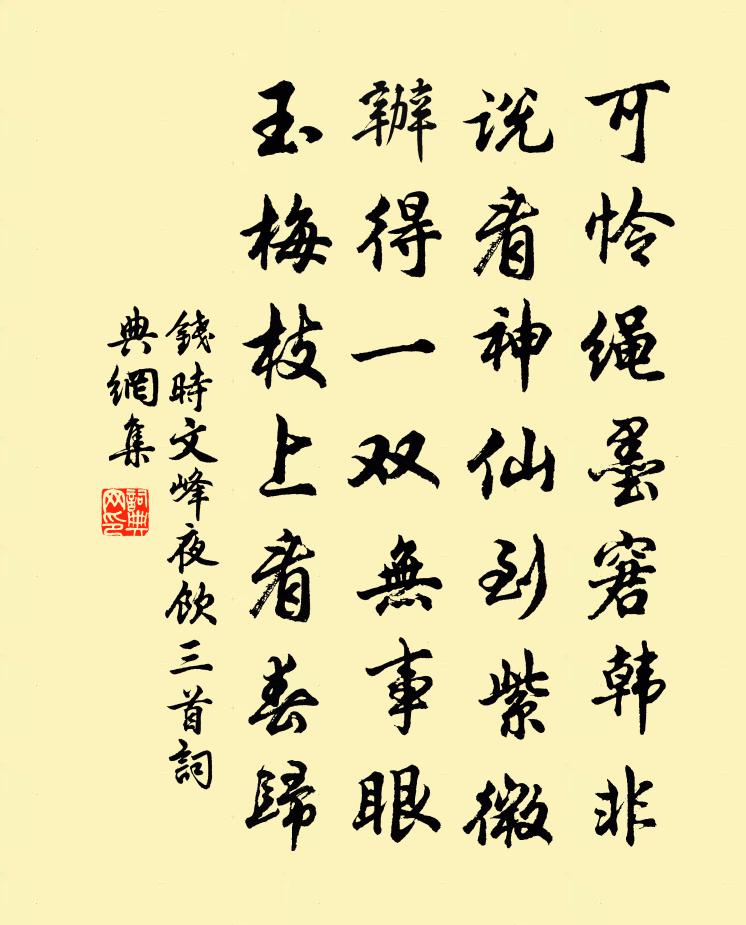 可怜绳墨窘韩非
说看神仙到紫微
辦得一双無事眼
玉梅枝上看春歸
錢時文峰夜飲三首詞
典網集
詞典
网印